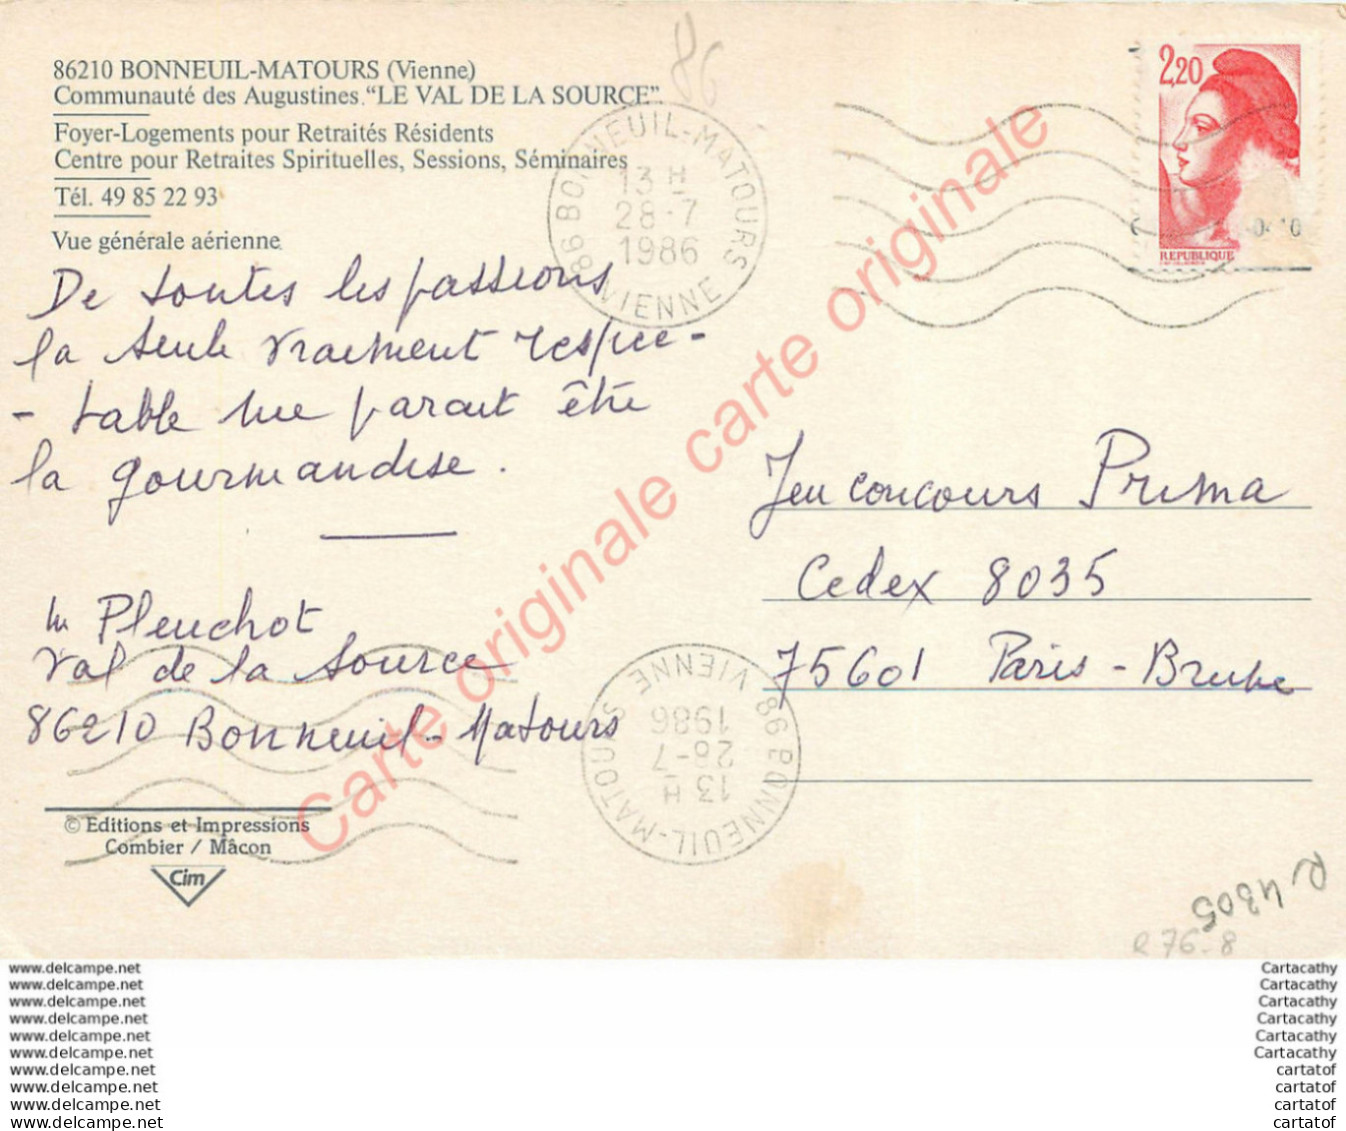 86210 BONNEUIL-MATOURS (Vienne)
Communauté des Augustines "LE VAL DE LA SOURCE"
Foyer-Logements pour Retraités Résidents
Centre pour Retraites Spirituelles, Sessions, Séminaires
Tél. 49 85 22 93
Vue générale aérienne
86
86 BONNEUIL-MATOURS
13 H
28-7
1986
VIENNE
2,20
REPUBLIQUE
De toutes les passions
la seule vraiment respec-
-table me parait être
la gourmandise.
Pleuchot
Val de la Source
86210 Bonneuil-Matours
Jeu concours Prima
Cedex 8035
75601 Paris-Brune
86 BONNEUIL-MATOURS
13 H
28-7
1986
VIENNE
© Editions et Impressions
Combier / Mâcon
Cim
R 4305
R 76-8
Carte originale carte originale
www.delcampe.net
www.delcampe.net
www.delcampe.net
www.delcampe.net
www.delcampe.net
www.delcampe.net
www.delcampe.net
www.delcampe.net
www.delcampe.net
www.delcampe.net
Cartacathy
Cartacathy
Cartacathy
Cartacathy
Cartacathy
Cartacathy
cartatof
cartatof
cartatof
cartatof